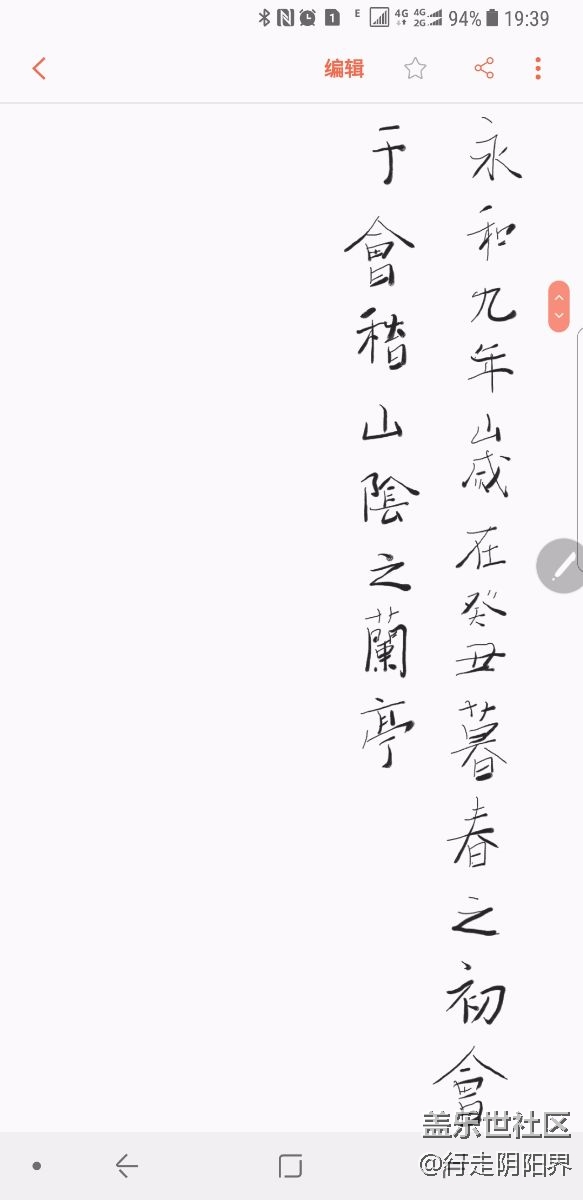 E 1 4G 4G 2G 94% 19:39
编辑
永和九年歲在癸丑暮春之初會
于會稽山陰之蘭亭
盖乐世社区
@行走阴阳界